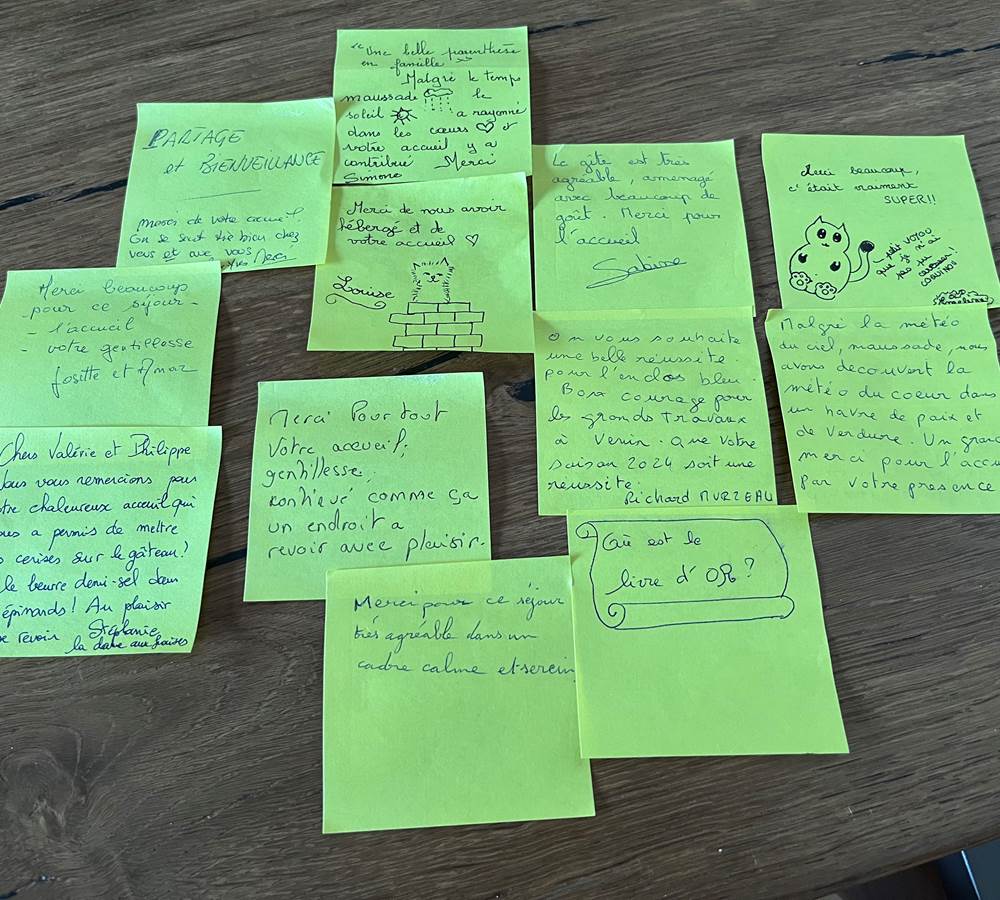 "Une belle parenthèse
en famille"
Malgré le temps
maussade le
soleil a rayonné
dans les cœurs et
votre accueil y a
contribué Merci
Simone
PARTAGE
et BIENVEILLANCE
merci de votre accueil.
On se sent très bien chez
vous et avec vous
Merci
Merci de nous avoir
héberge et de
votre accueil
Louise
Le gîte est très
agréable, amenagé
avec beaucoup de
goût. Merci pour
l'accueil
Sabine
Merci beaucoup,
c'était vraiment
SUPER!!
petit VOYOU
que je n'ai
pas pu
Merci beaucoup
pour ce séjour -
- l'accueil
- votre gentillesse
Josette et Omar
On vous souhaite
une belle réussite
pour l'enclos bleu.
Bon courage pour
les grands travaux
à venir. Que votre
saison 2024 soit une
reussite.
Richard MURZEAU
Malgré la météo
du ciel, maussade, nous
avons découvert la
météo du coeur dans
un havre de paix et
de verdure. Un gran
merci pour l'accu
Par votre presence
Chers Valérie et Philippe
Nous vous remercions pour
tre chaleureux accueil qui
ous a permis de mettre
s cerises sur le gâteau!
le beurre demi-sel dans
épinards! Au plaisir
e revoir Stéphanie
la dame aux fraises
Merci Pour tout
Votre accueil,
gentillesse,
continué comme ça
un endroit a
revoir avec plaisir.
Où est le
livre d'OR?
Merci pour ce séjour
très agréable dans un
cadre calme et serein